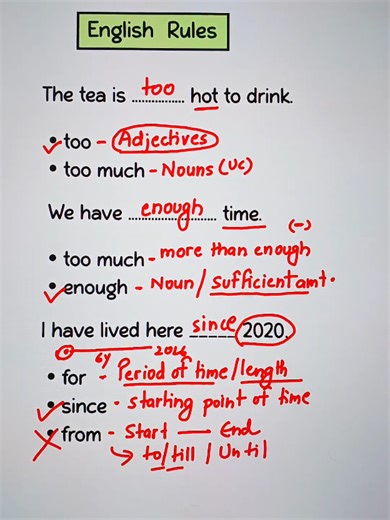 English Rules
The tea is too hot to drink.
• too - Adjectives
• too much - Nouns (UC)
We have enough time.
(-)
• too much - more than enough
• enough - Noun / sufficient amt.
I have lived here since 2020.
6y 2026
• for - Period of time / length
• since - starting point of time
• from - Start — End
→ to / till / Until